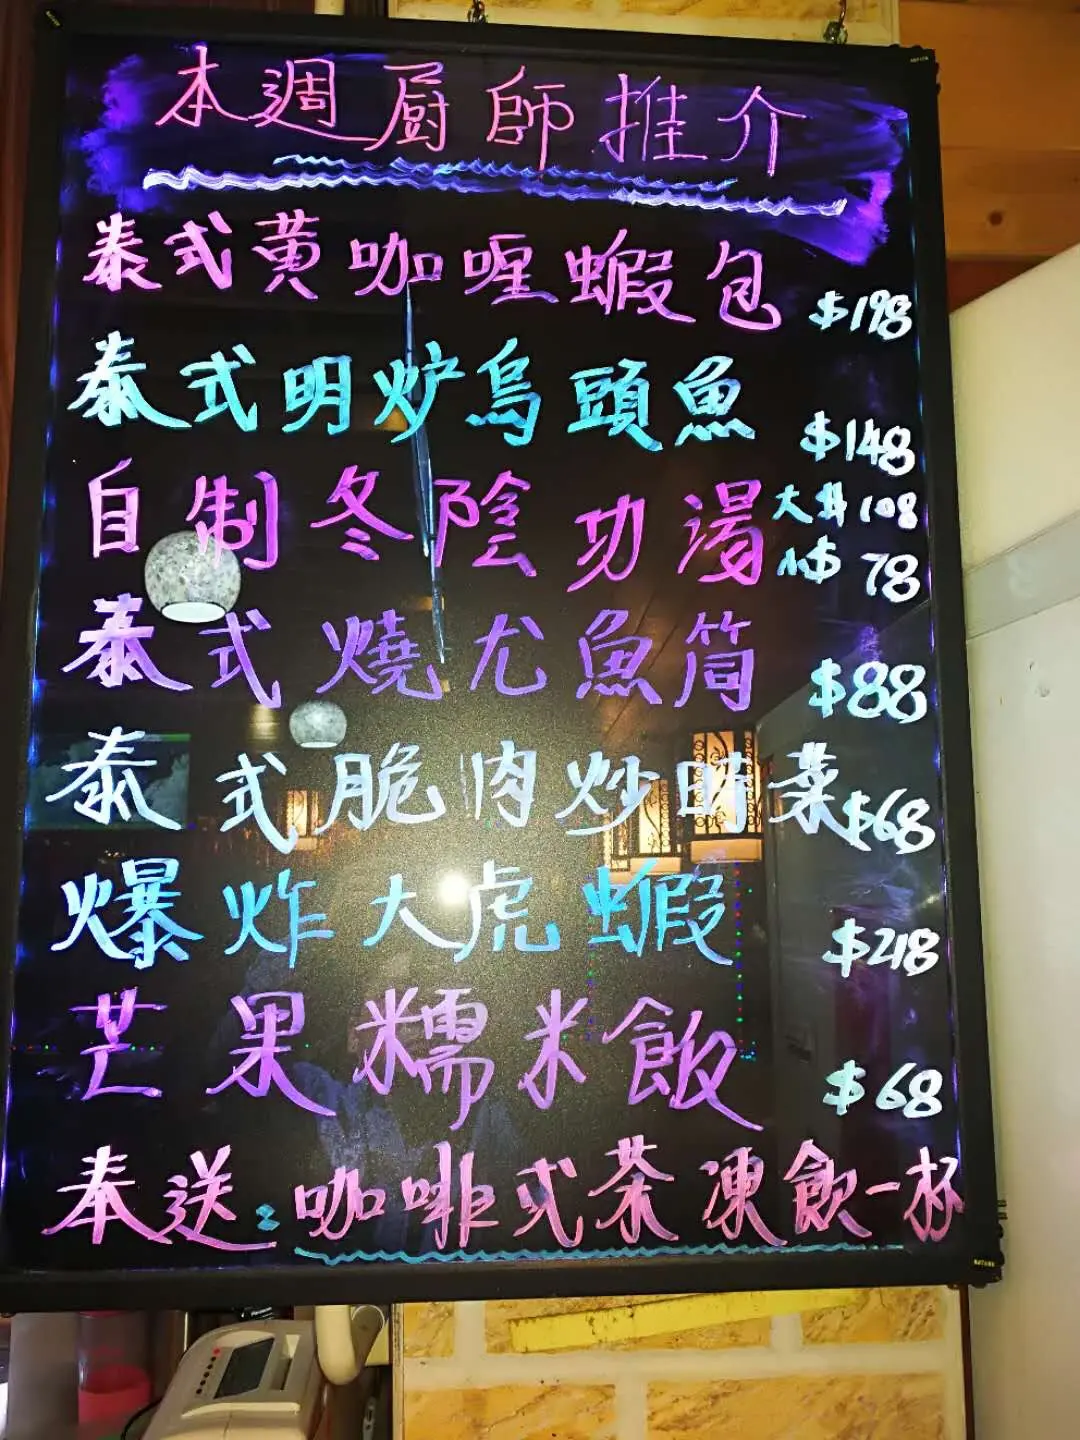 本週厨師推介
泰式黄咖喱蝦包 $198
泰式明炉烏頭魚 $148
自制冬陰功湯 大$108
小$78
泰式燒尤魚筒 $88
泰式脆肉炒時菜 $68
爆炸大虎蝦 $218
芒果糯米飯 $68
奉送:咖啡或茶凍飲一杯